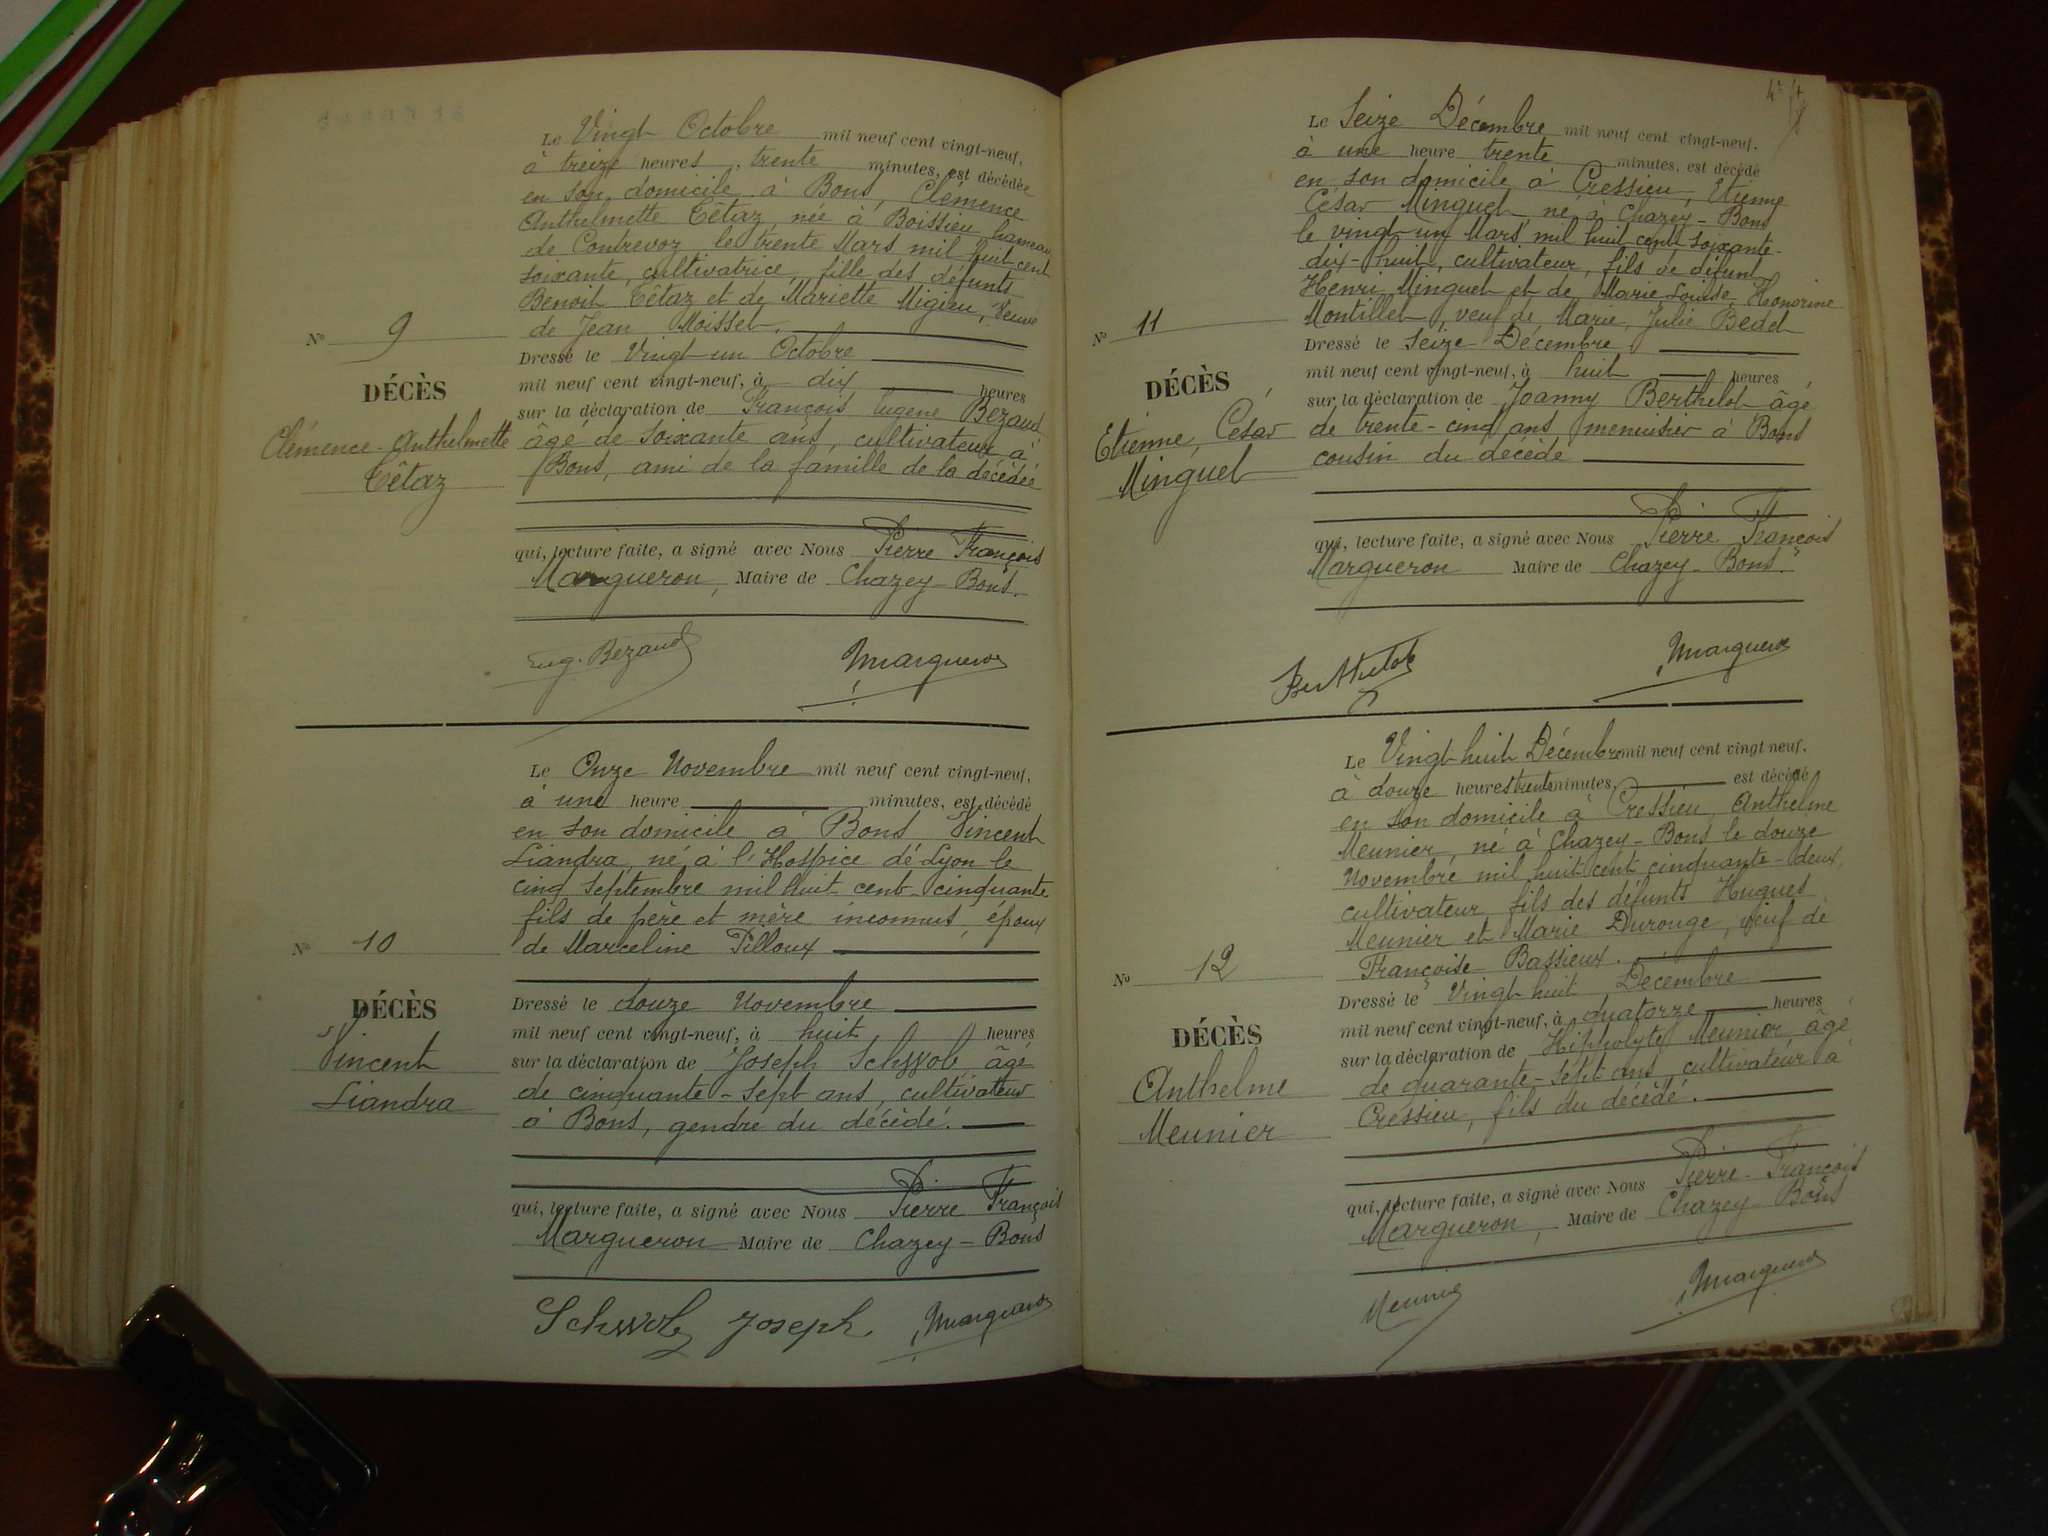 Le Vingt Octobre mil neuf cent vingt-neuf,
à treize heures, trente minutes, est décédée
en son domicile à Bons, Clémence
Anthelmette Têtaz, née à Boissieu, hameau
de Contrevoz, le trente Mars mil huit cent
soixante, cultivatrice, fille des défunts
Benoit Têtaz et de Mariette Migieu, veuve
de Jean Moisset.
N° 9
Dressé le Vingt-un Octobre
mil neuf cent vingt-neuf, à dix heures
DÉCÈS
sur la déclaration de François Eugène Bezaud
Clémence-Anthelmette
Têtaz
âgé de soixante ans, cultivateur à
Bons, ami de la famille de la décédée
qui, lecture faite, a signé avec Nous Pierre François
Margueron, Maire de Chazey-Bons.
Eug. Bezaud Margueron
Le Onze Novembre mil neuf cent vingt-neuf,
à une heure minutes, est décédé
en son domicile à Bons Vincent
Liandra, né à l'Hospice de Lyon le
cinq Septembre mil huit cent cinquante
fils de père et mère inconnus, époux
de Marceline Pilloux
N° 10
DÉCÈS
Vincent
Liandra
Dressé le douze Novembre
mil neuf cent vingt-neuf, à huit heures
sur la déclaration de Joseph Schwob, âgé
de cinquante-sept ans, cultivateur
à Bons, gendre du décédé.
qui, lecture faite, a signé avec Nous Pierre François
Margueron Maire de Chazey-Bons
Schwob Joseph. Margueron
Le Seize Décembre mil neuf cent vingt-neuf,
à une heure trente minutes, est décédé
en son domicile à Cressieu, Etienne
César Minguet, né à Chazey-Bons
le vingt-un Mars mil huit cent soixante-
dix-huit, cultivateur, fils de défunt
Henri Minguet et de Marie Louise, Honorine
Montillet, veuf de Marie, Julie Bedet
N° 11
Dressé le Seize Décembre
mil neuf cent vingt-neuf, à huit heures
DÉCÈS
Etienne, César
Minguet
sur la déclaration de Joanny Berthelot âgé
de trente-cinq ans menuisier à Bons
cousin du décédé
qui, lecture faite, a signé avec Nous Pierre François
Margueron Maire de Chazey-Bons.
Berthelot Margueron
Le Vingt-huit Décembre mil neuf cent vingt neuf,
à douze heures trente minutes, est décédé
en son domicile à Cressieu, Anthelme
Meunier, né à Chazey-Bons le douze
Novembre mil huit cent cinquante-deux,
cultivateur, fils des défunts Hugues
Meunier et Marie Durouge, veuf de
Françoise Bassieux.
N° 12
DÉCÈS
Anthelme
Meunier
Dressé le Vingt-huit Décembre
mil neuf cent vingt-neuf, à quatorze heures
sur la déclaration de Hippolyte Meunier, âgé
de quarante-sept ans, cultivateur à
Cressieu, fils du décédé.
qui, lecture faite, a signé avec Nous Pierre-François
Margueron, Maire de Chazey-Bons
Meunier Margueron